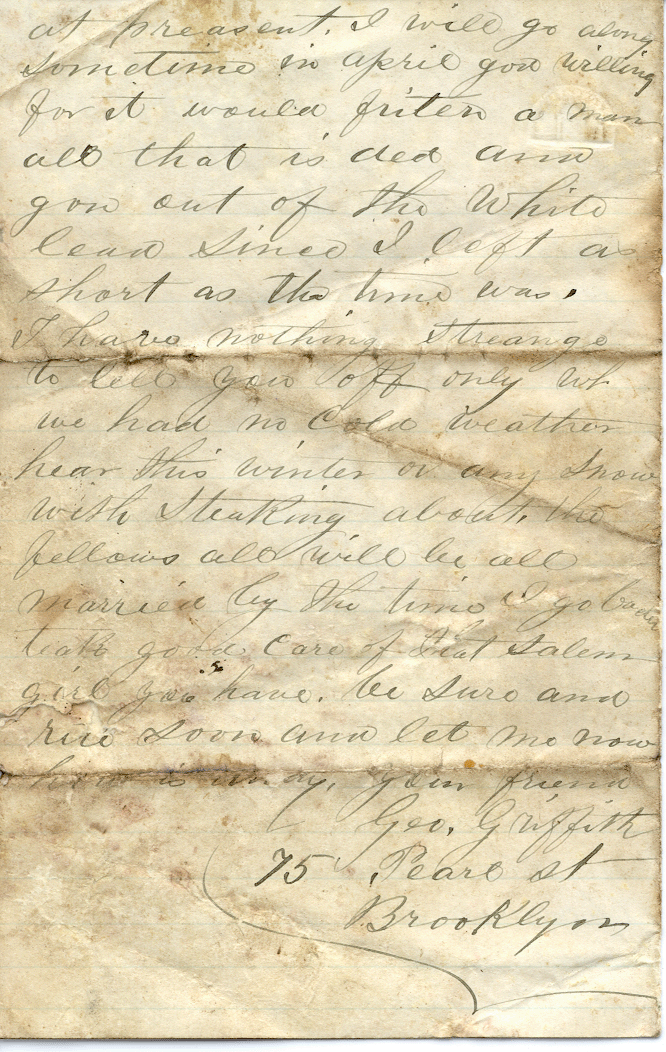 at preasent. I will go along
sometime in april god willing
for it would friten a man
all that is ded and
gon out of the White
lead since I left as
short as the time was.
I have nothing streange
to tell you off only
we had no Cold weather
hear this winter or any snow
with steaking about. the
fellows all will be all
married by the time I go back
teak good care of that salem
girl you have. be sure and
rite soon and let me now
how is your friend
Geo. Griffith
75 Pearl st
Brooklyn